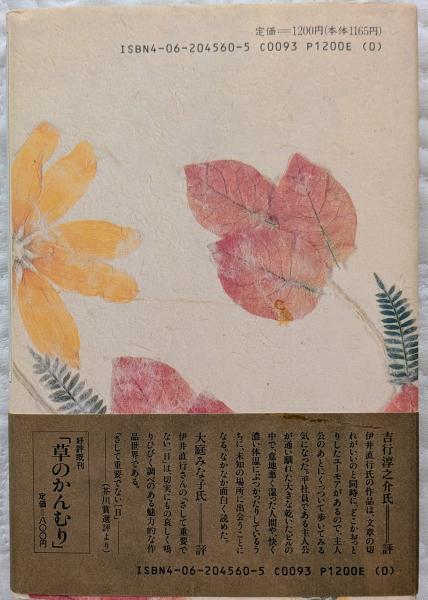 定価=1200円(本体1165円)
ISBN4-06-204560-5 C0093 P1200E (0)
吉行淳之介氏=評
伊井直行氏の作品は、文章の切
れがいいのと同時に、どこかおっと
りしたユーモアがあるので、主人
公のあとにくっついて歩いてみる
気になった。平社員である主人公
が通い馴れた大きな乾いたビルの
中で、意地悪く湿った人間や、快く
濃い体温にぶつかったりしているう
ちに、未知の場所に出会うことに
なる。なかなか面白く読めた。
大庭みな子氏=評
伊井直行さんの「さして重要で
ない一日」は、切実にもの哀しく鳴
りひびく調べのある魅力的な作
品世界である。
「さして重要でない一日」
(芥川賞選評より)
好評既刊
「草のかんむり」
定価一八〇〇円
ISBN4-06-204560-5 C0093 P1200E (0)